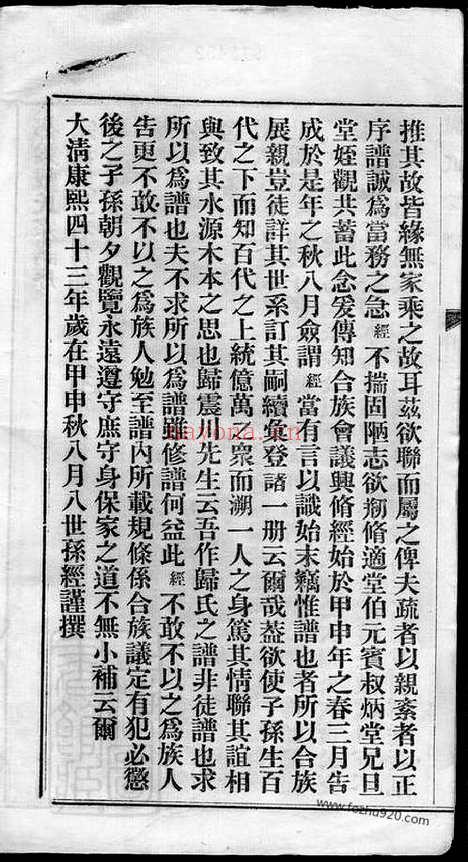 推其故皆緣無家乘之故耳茲欲聯而屬之俾夫疏者以親紊者以正
序譜誠爲當務之急經不揣固陋志欲剙脩適堂伯元賓叔炳堂兄旦
堂姪觀共蓄此念爰傳知合族會議興脩經始於甲申年之春三月告
成於是年之秋八月僉謂經當有言以識始末竊惟譜也者所以合族
展親豈徒詳其世系訂其嗣續彙登諸一册云爾哉葢欲使子孫生百
代之下而知百代之上統億萬人之衆而溯一人之身篤其情聯其誼相
與致其水源木本之思也歸震川先生云吾作歸氏之譜非徒譜也求
所以爲譜也夫不求所以爲譜雖修譜何益此經不敢不以之爲族人
告更不敢不以之爲族人勉至譜內所載規條係合族議定有犯必懲
後之子孫朝夕觀覽永遠遵守庶守身保家之道不無小補云爾
大淸康熙四十三年歲在甲申秋八月八世孫經謹撰
nayona.cn
www.fozhu920.com